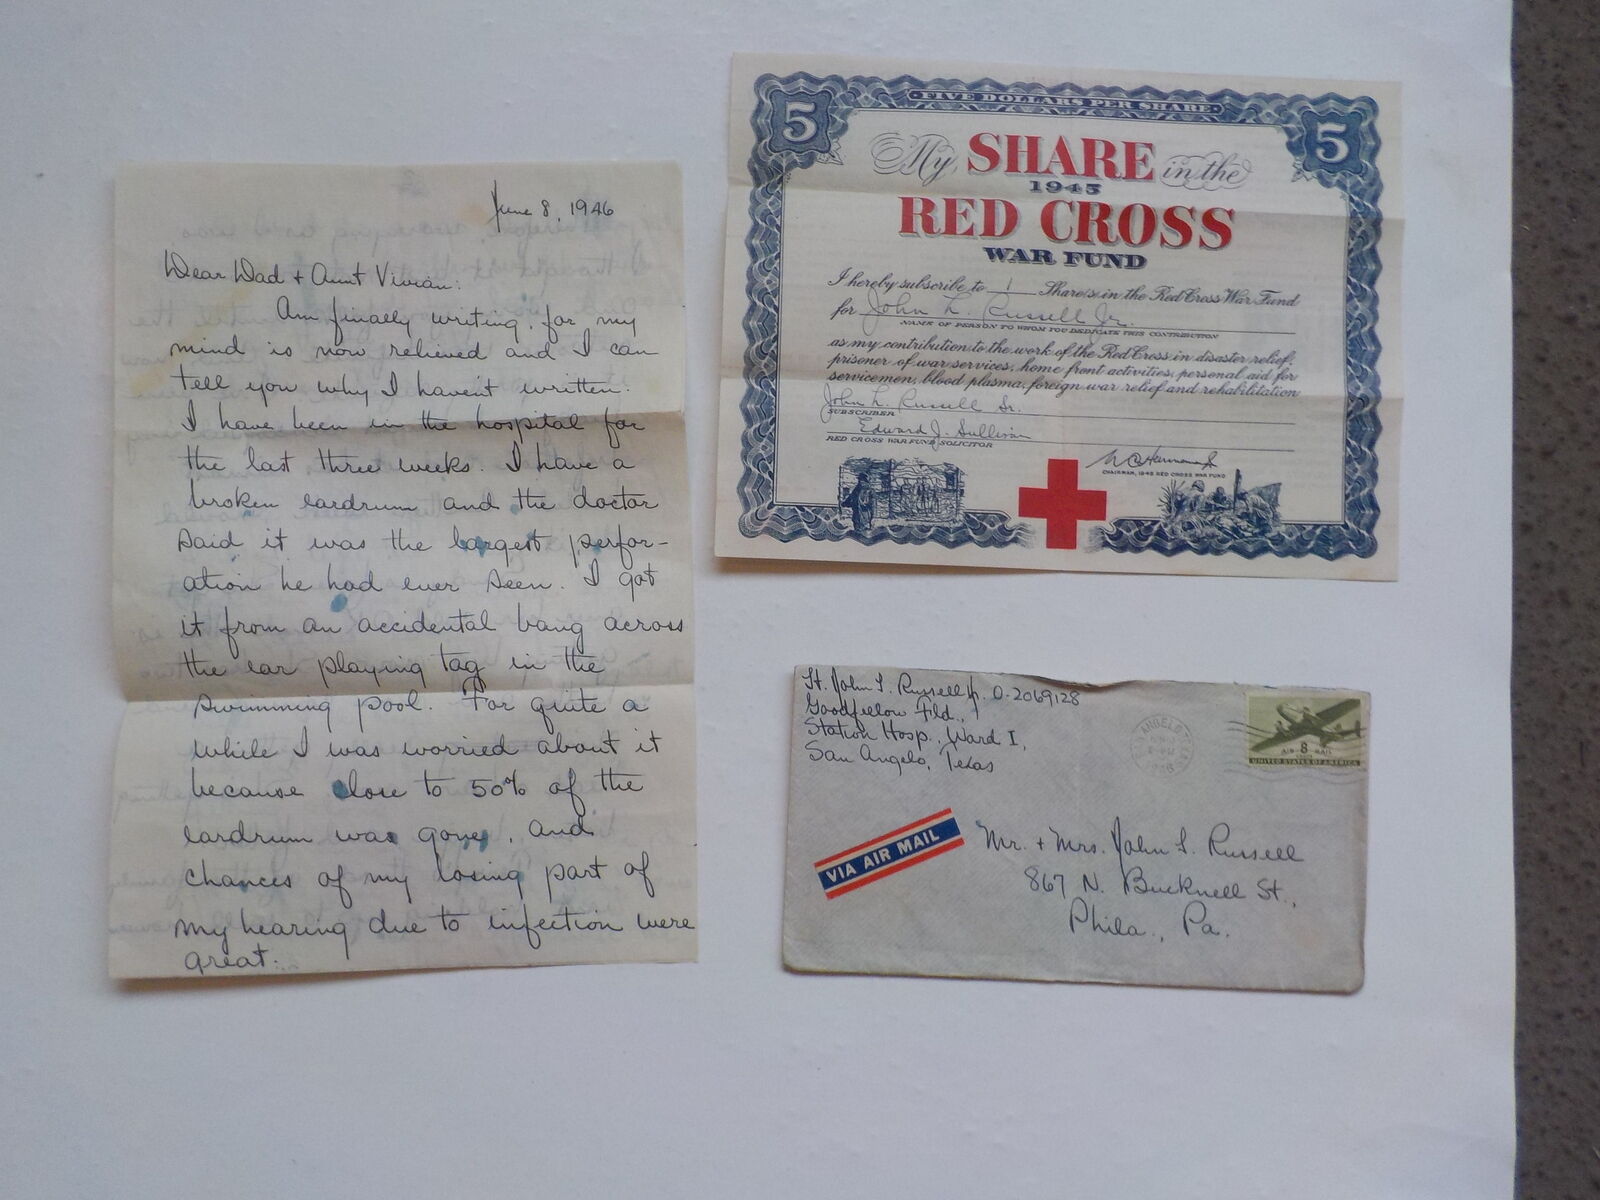 June 8, 1946
Dear Dad + Aunt Vivian:
Am finally writing, for my
mind is now relieved and I can
tell you why I haven't written.
I have been in the hospital for
the last three weeks. I have a
broken eardrum and the doctor
said it was the largest perfor-
ation he had ever seen. I got
it from an accidental bang across
the ear playing tag in the
swimming pool. For quite a
while I was worried about it
because close to 50% of the
eardrum was gone, and
chances of my losing part of
my hearing due to infection were
great.
5 FIVE DOLLARS PER SHARE 5
My SHARE in the
1945
RED CROSS
WAR FUND
I hereby subscribe to 1 Share(s) in the Red Cross War Fund
for John L. Russell Jr.
NAME OF PERSON TO WHOM YOU DEDICATE THIS CONTRIBUTION
as my contribution to the work of the Red Cross in disaster relief,
prisoner of war services, home front activities, personal aid for
servicemen, blood plasma, foreign war relief and rehabilitation
John L. Russell Sr.
SUBSCRIBER
Edward J. Sullivan
RED CROSS WAR FUND SOLICITOR
CHAIRMAN, 1945 RED CROSS WAR FUND
Lt. John L. Russell Jr. O-2069128
Goodfellow Fld.,
Station Hosp., Ward I,
San Angelo, Texas
1946
AIR 8 MAIL
UNITED STATES OF AMERICA
VIA AIR MAIL
Mr. + Mrs. John L. Russell
867 N. Bucknell St.,
Phila., Pa.